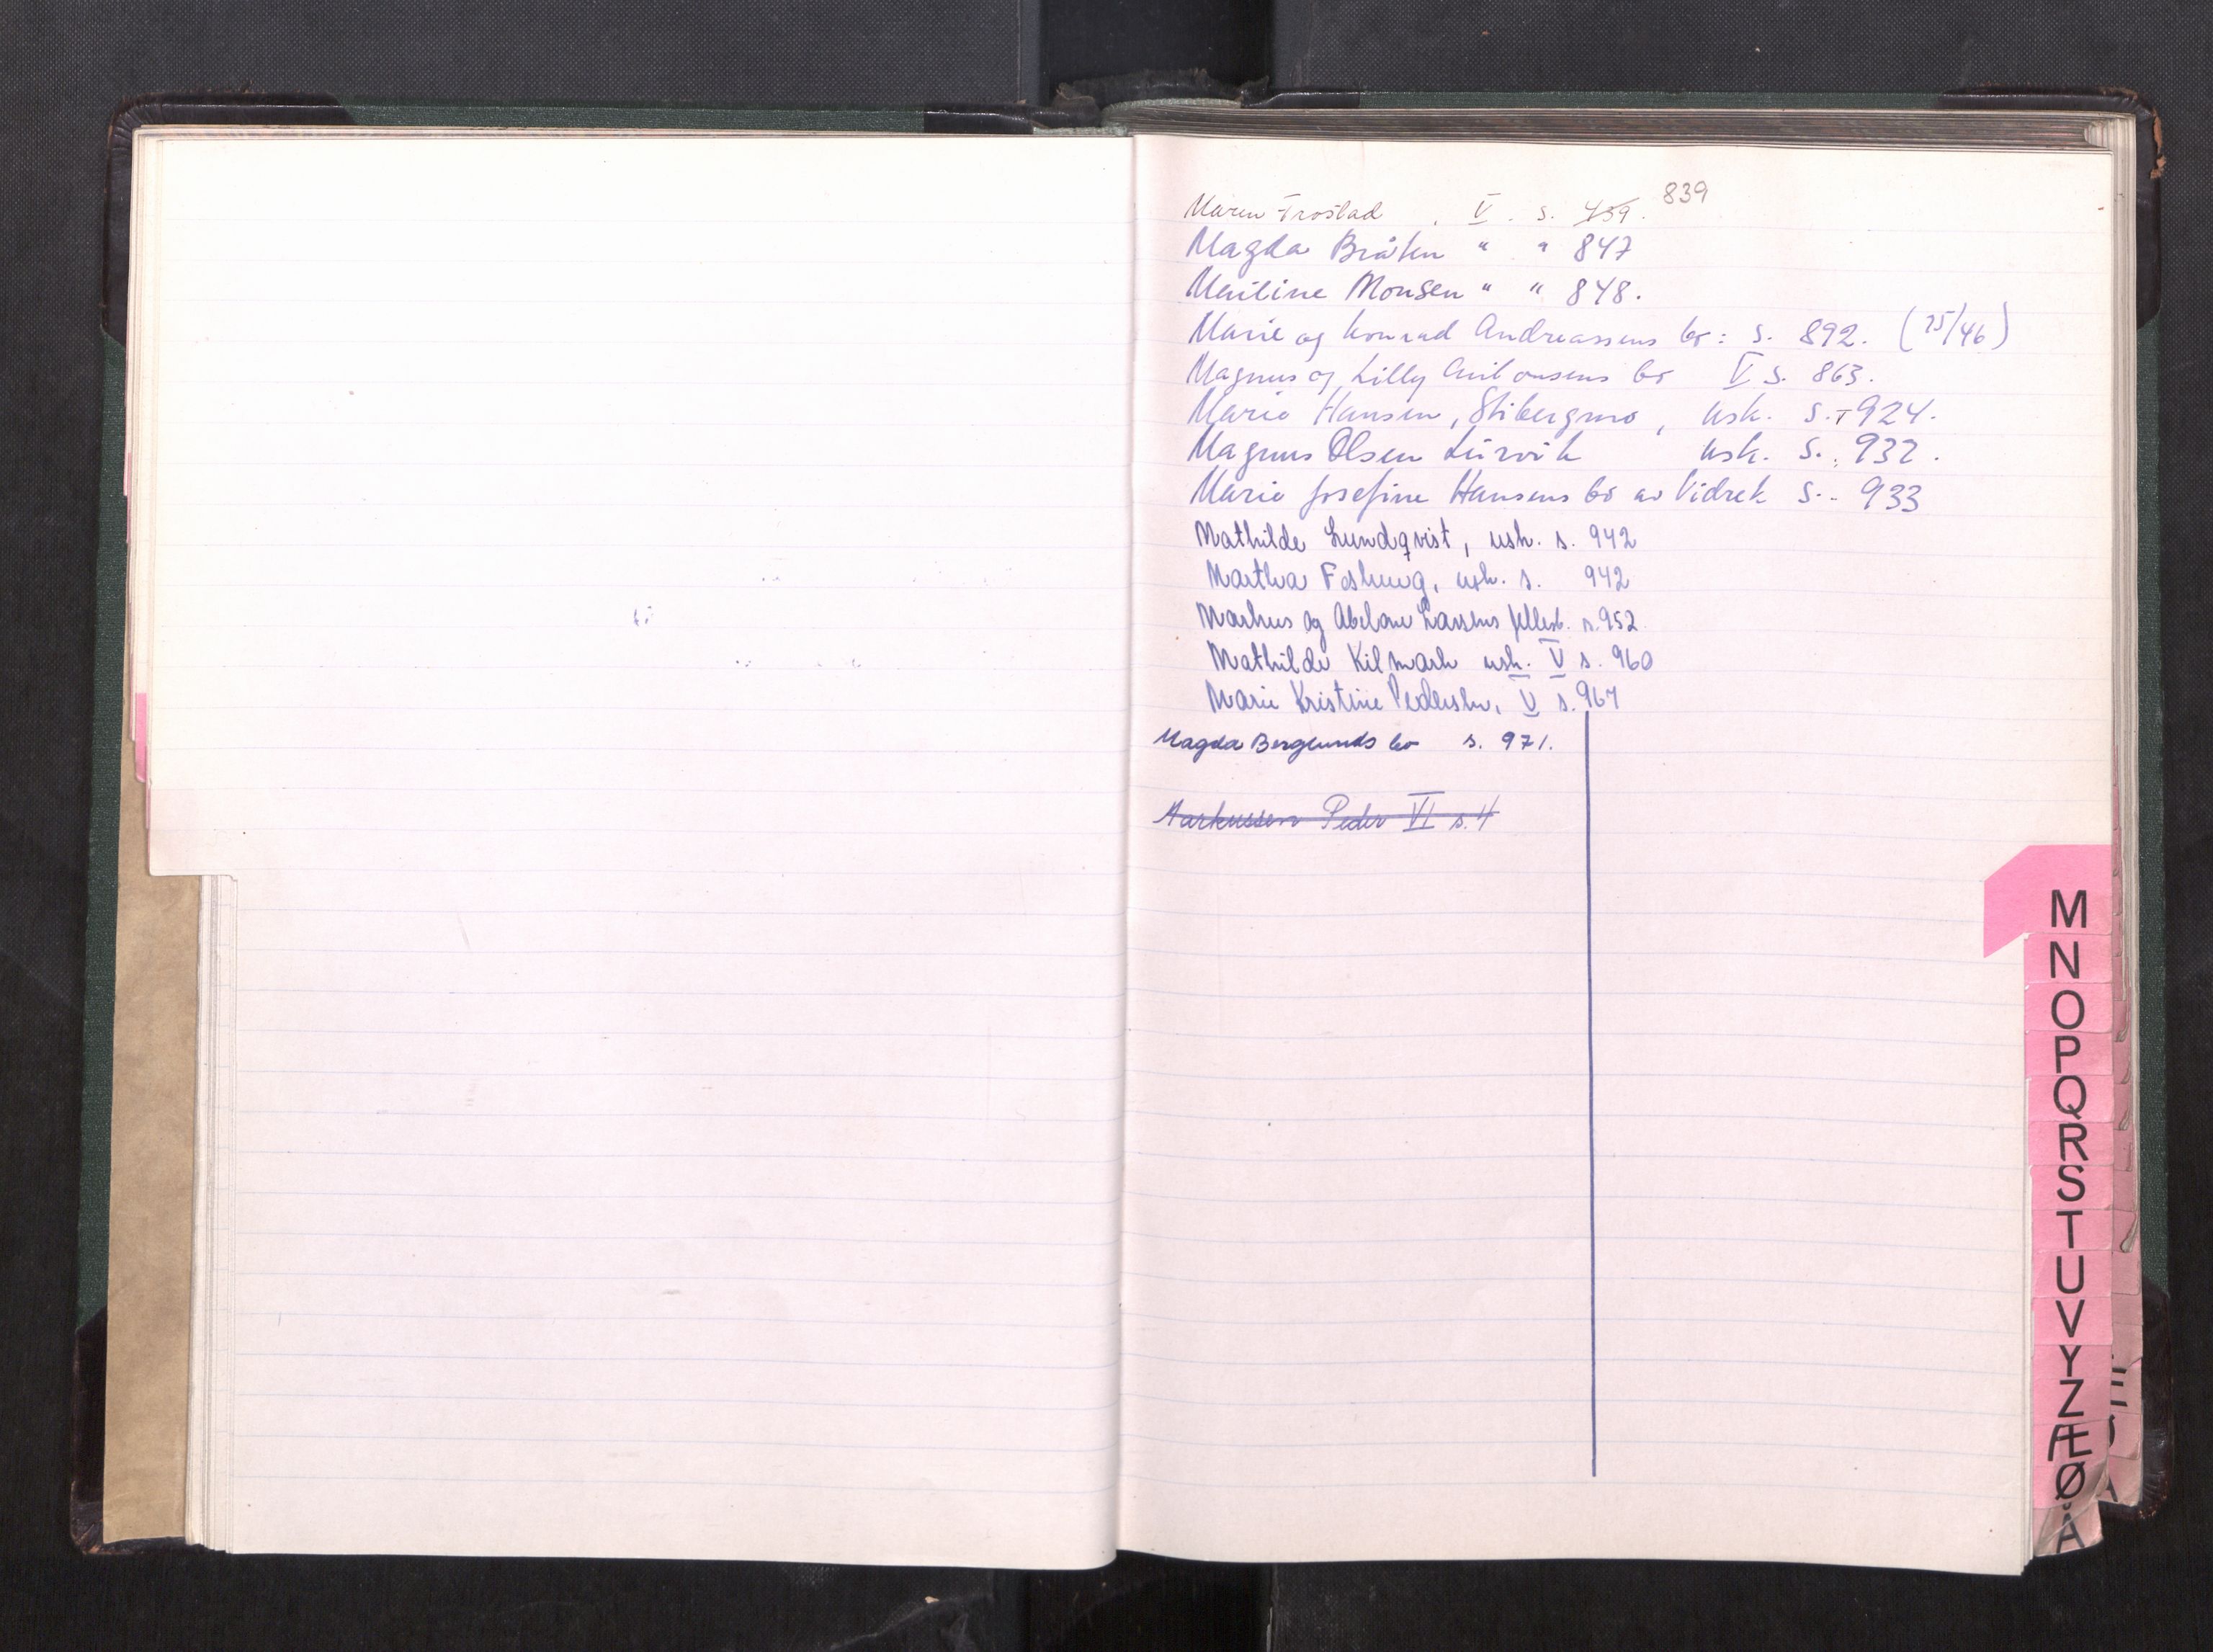 Maren Frostad . V . s. 439. 839
Magda Bråten " " 847
Meritine Monsen " " 848.
Marie og Konrad Andreassens bo: s. 892. (25/46)
Magnus og Lilly Antonsens bo V s. 863.
Marie Hansen, Stibergmo, usk. s. 924.
Magnus Olsen Leirvik usk. s. 932.
Marie Josefine Hansens bo av Vidrek s. 933
Mathilde Lundqvist, usk. s. 942
Martha usk. s. 942
Markus og Abelone Larsens fellesb. s. 952
Mathilde Kilmark usk. V s. 960
Marie Kristine Pedersen, V s. 967
Magda Berglunds bo s. 971.
Markussen Peder VI s. 4
M
N
O
P
Q
R
S
T
U
V
Y
Z
Æ
Ø
Å